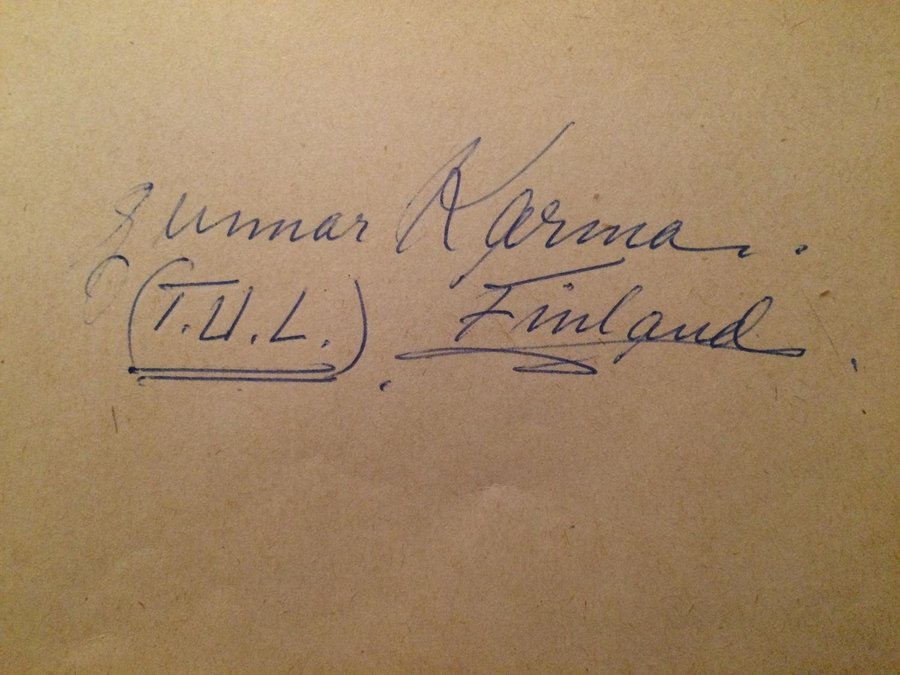 Gunnar Karma.
(T.U.L.). Finland.